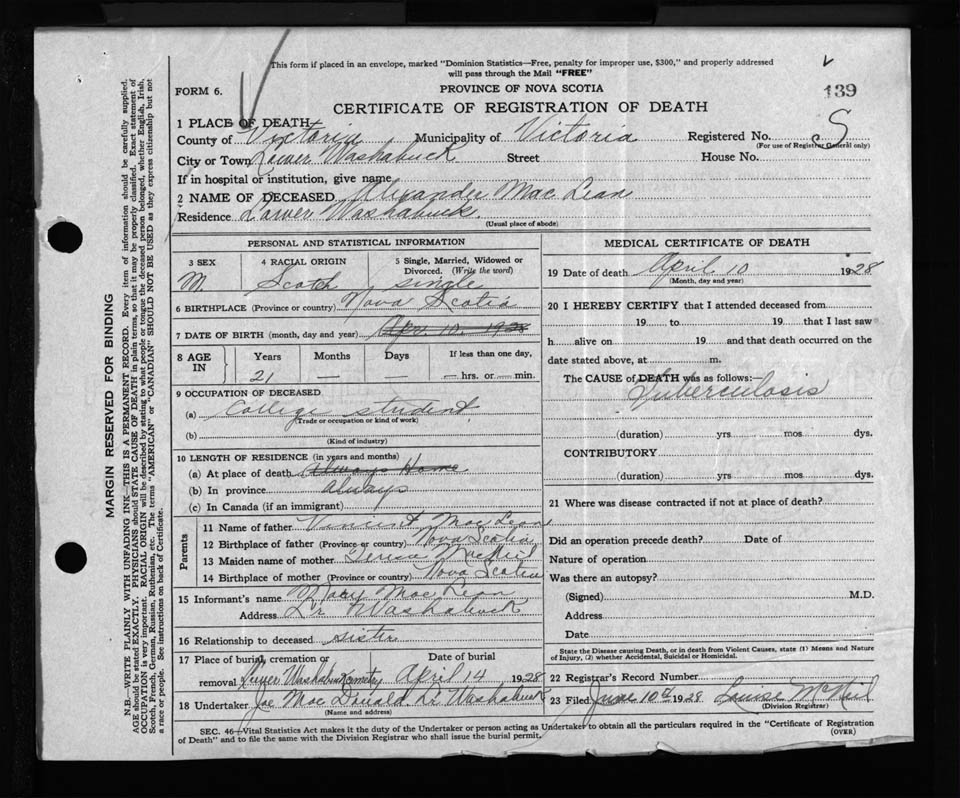 This form if placed in an envelope, marked "Dominion Statistics—Free, penalty for improper use, $300," and properly addressed
will pass through the Mail "FREE"
FORM 6.
PROVINCE OF NOVA SCOTIA
139
CERTIFICATE OF REGISTRATION OF DEATH
1 PLACE OF DEATH
County of Victoria Municipality of Victoria Registered No. S
(For use of Registrar General only)
City or Town Lower Washabuck Street House No.
If in hospital or institution, give name
2 NAME OF DECEASED Alexander Mac Lean
Residence Lower Washabuck
(Usual place of abode)
PERSONAL AND STATISTICAL INFORMATION
3 SEX 4 RACIAL ORIGIN 5 Single, Married, Widowed or
Divorced. (Write the word)
M. Scotch single
6 BIRTHPLACE (Province or country) Nova Scotia
7 DATE OF BIRTH (month, day and year) Apr. 10. 1928
8 AGE IN Years Months Days If less than one day,
21 — — — hrs. or — min.
9 OCCUPATION OF DECEASED
(a) College student
(Trade or occupation or kind of work)
(b)
(Kind of industry)
10 LENGTH OF RESIDENCE (in years and months)
(a) At place of death Always Home
(b) In province always
(c) In Canada (if an immigrant)
Parents
11 Name of father Vincent Mac Lean
12 Birthplace of father (Province or country) Nova Scotia
13 Maiden name of mother MacNeil
14 Birthplace of mother (Province or country) Nova Scotia
15 Informant's name Mary Mac Lean
Address Lr Washabuck
16 Relationship to deceased sister
17 Place of burial, cremation or Date of burial
removal Lower Washabuck Cemetry April 14 1928
18 Undertaker Joe Mac Donald Lr Washabuck
(Name and address)
MEDICAL CERTIFICATE OF DEATH
19 Date of death April 10 1928
(Month, day and year)
20 I HEREBY CERTIFY that I attended deceased from
19 to 19 that I last saw
h alive on 19 and that death occurred on the
date stated above, at m.
The CAUSE of DEATH was as follows:—
Tuberculosis
(duration) yrs mos dys.
CONTRIBUTORY
(duration) yrs. mos dys.
21 Where was disease contracted if not at place of death?
Did an operation precede death? Date of
Nature of operation
Was there an autopsy?
(Signed) M.D.
Address
Date
State the Disease causing Death, or in death from Violent Causes, state (1) Means and
Nature of Injury, (2) whether Accidental, Suicidal or Homicidal.
22 Registrar's Record Number
23 Filed June 10th 1928 Louise McNeil
(Division Registrar)
SEC. 46—Vital Statistics Act makes it the duty of the Undertaker or person acting as Undertaker to obtain all the particulars required in the "Certificate of Registration
of Death" and to file the same with the Division Registrar who shall issue the burial permit.
(OVER)
MARGIN RESERVED FOR BINDING
N.B.—WRITE PLAINLY WITH UNFADING INK—THIS IS A PERMANENT RECORD. Every item of information should be carefully supplied.
AGE should be stated EXACTLY. PHYSICIANS should STATE CAUSE OF DEATH in plain terms, so that it may be properly classified. Exact statement of
OCCUPATION is very important. RACIAL ORIGIN will be described by stating to what people or tongue the deceased person belonged, whether English, Irish,
Scotch, French, German, Russian, Ruthenian, etc. The terms "AMERICAN" or "CANADIAN" SHOULD NOT BE USED as they express citizenship but not
a race or people. See instructions on back of Certificate.